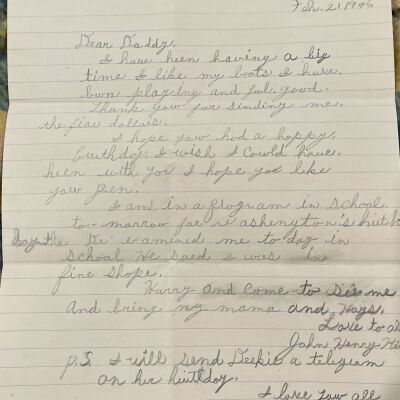 Feb. 21 1946
Dear Daddy,
I have been having a big
time I like my boots I have.
bwn playing and ful good.
Thank yow for sinding me.
the fiav dollers.
I hope yaw had a happy.
Buithday. I wish I Cowld have.
been with you I hope you like
yaw pen.
I am in a Program in School
to-marrow for washengton's
Di: examined me to day in
School We Saed I was in
fine Shape.
Hurry and Come to See me
And bring my mama and Hays.
Love to all
John Henry
P.S. I will send Deekie a telegram
on her birthday.
I love yaw all